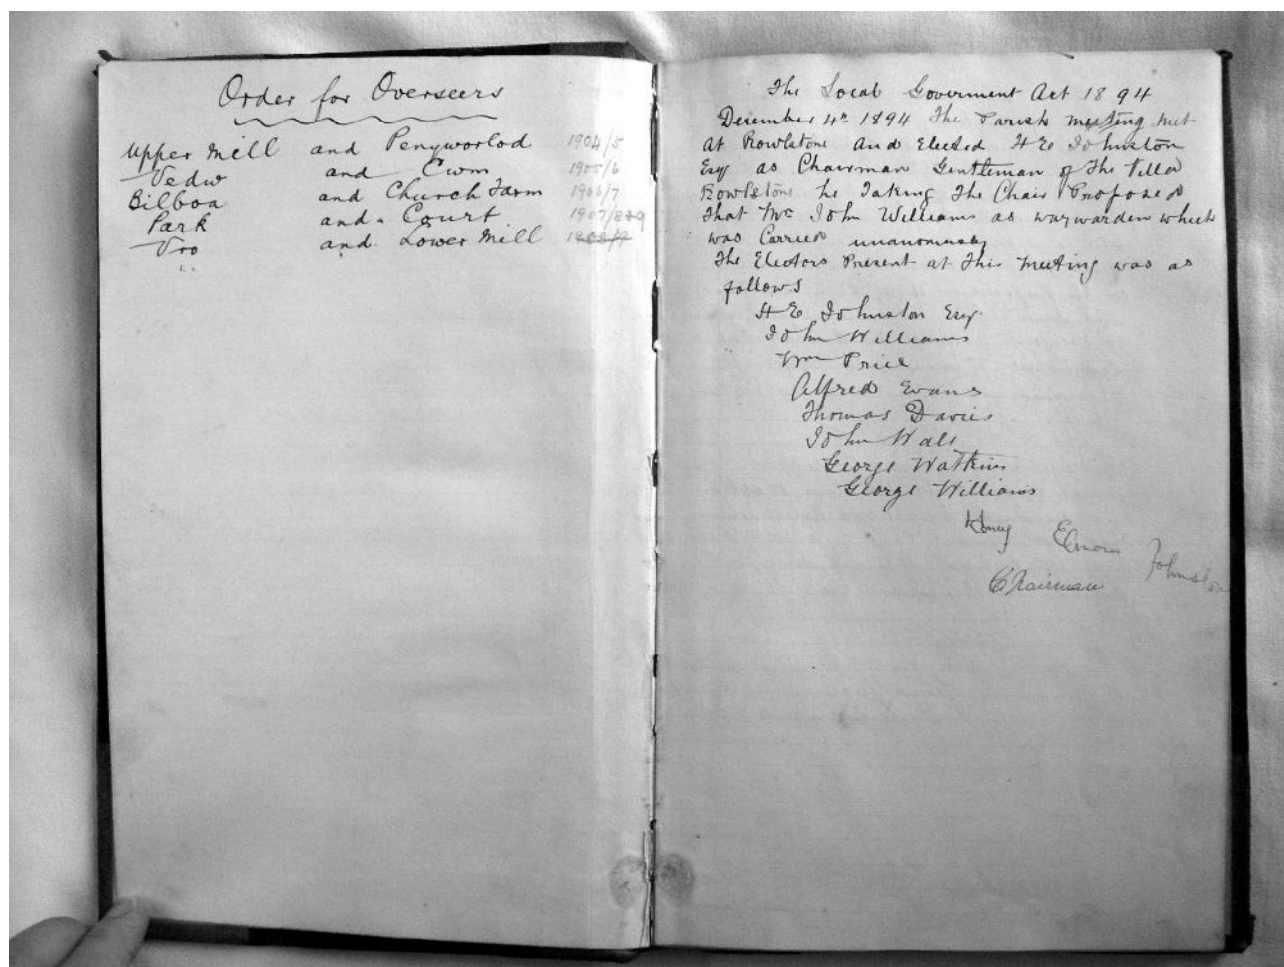 Order for Overseers
Upper Mill and Penyworlod 1904/5
Vedw and Cwm 1905/6
Bilboa and Church Farm 1906/7
Park and Court 1907/8
Vro and Lower Mill
The Local Goverment Act 1894
Desember 4th 1894 The Parish meeting met
at Rowlstone and Elected H E Johnston
Esq as Chairman Gentleman of The Villa
Rowlstone he Taking The Chair Proposed
That Mr John Williams as waywarden which
was Carried unanomusly
The Electors Present at This Meeting was as
follows
H E Johnston Esq.
John Williams
Wm Price
Alfred Evans
Thomas Davies
John Wall
George Watkins
George Williams
Henry Johnston
Chairman